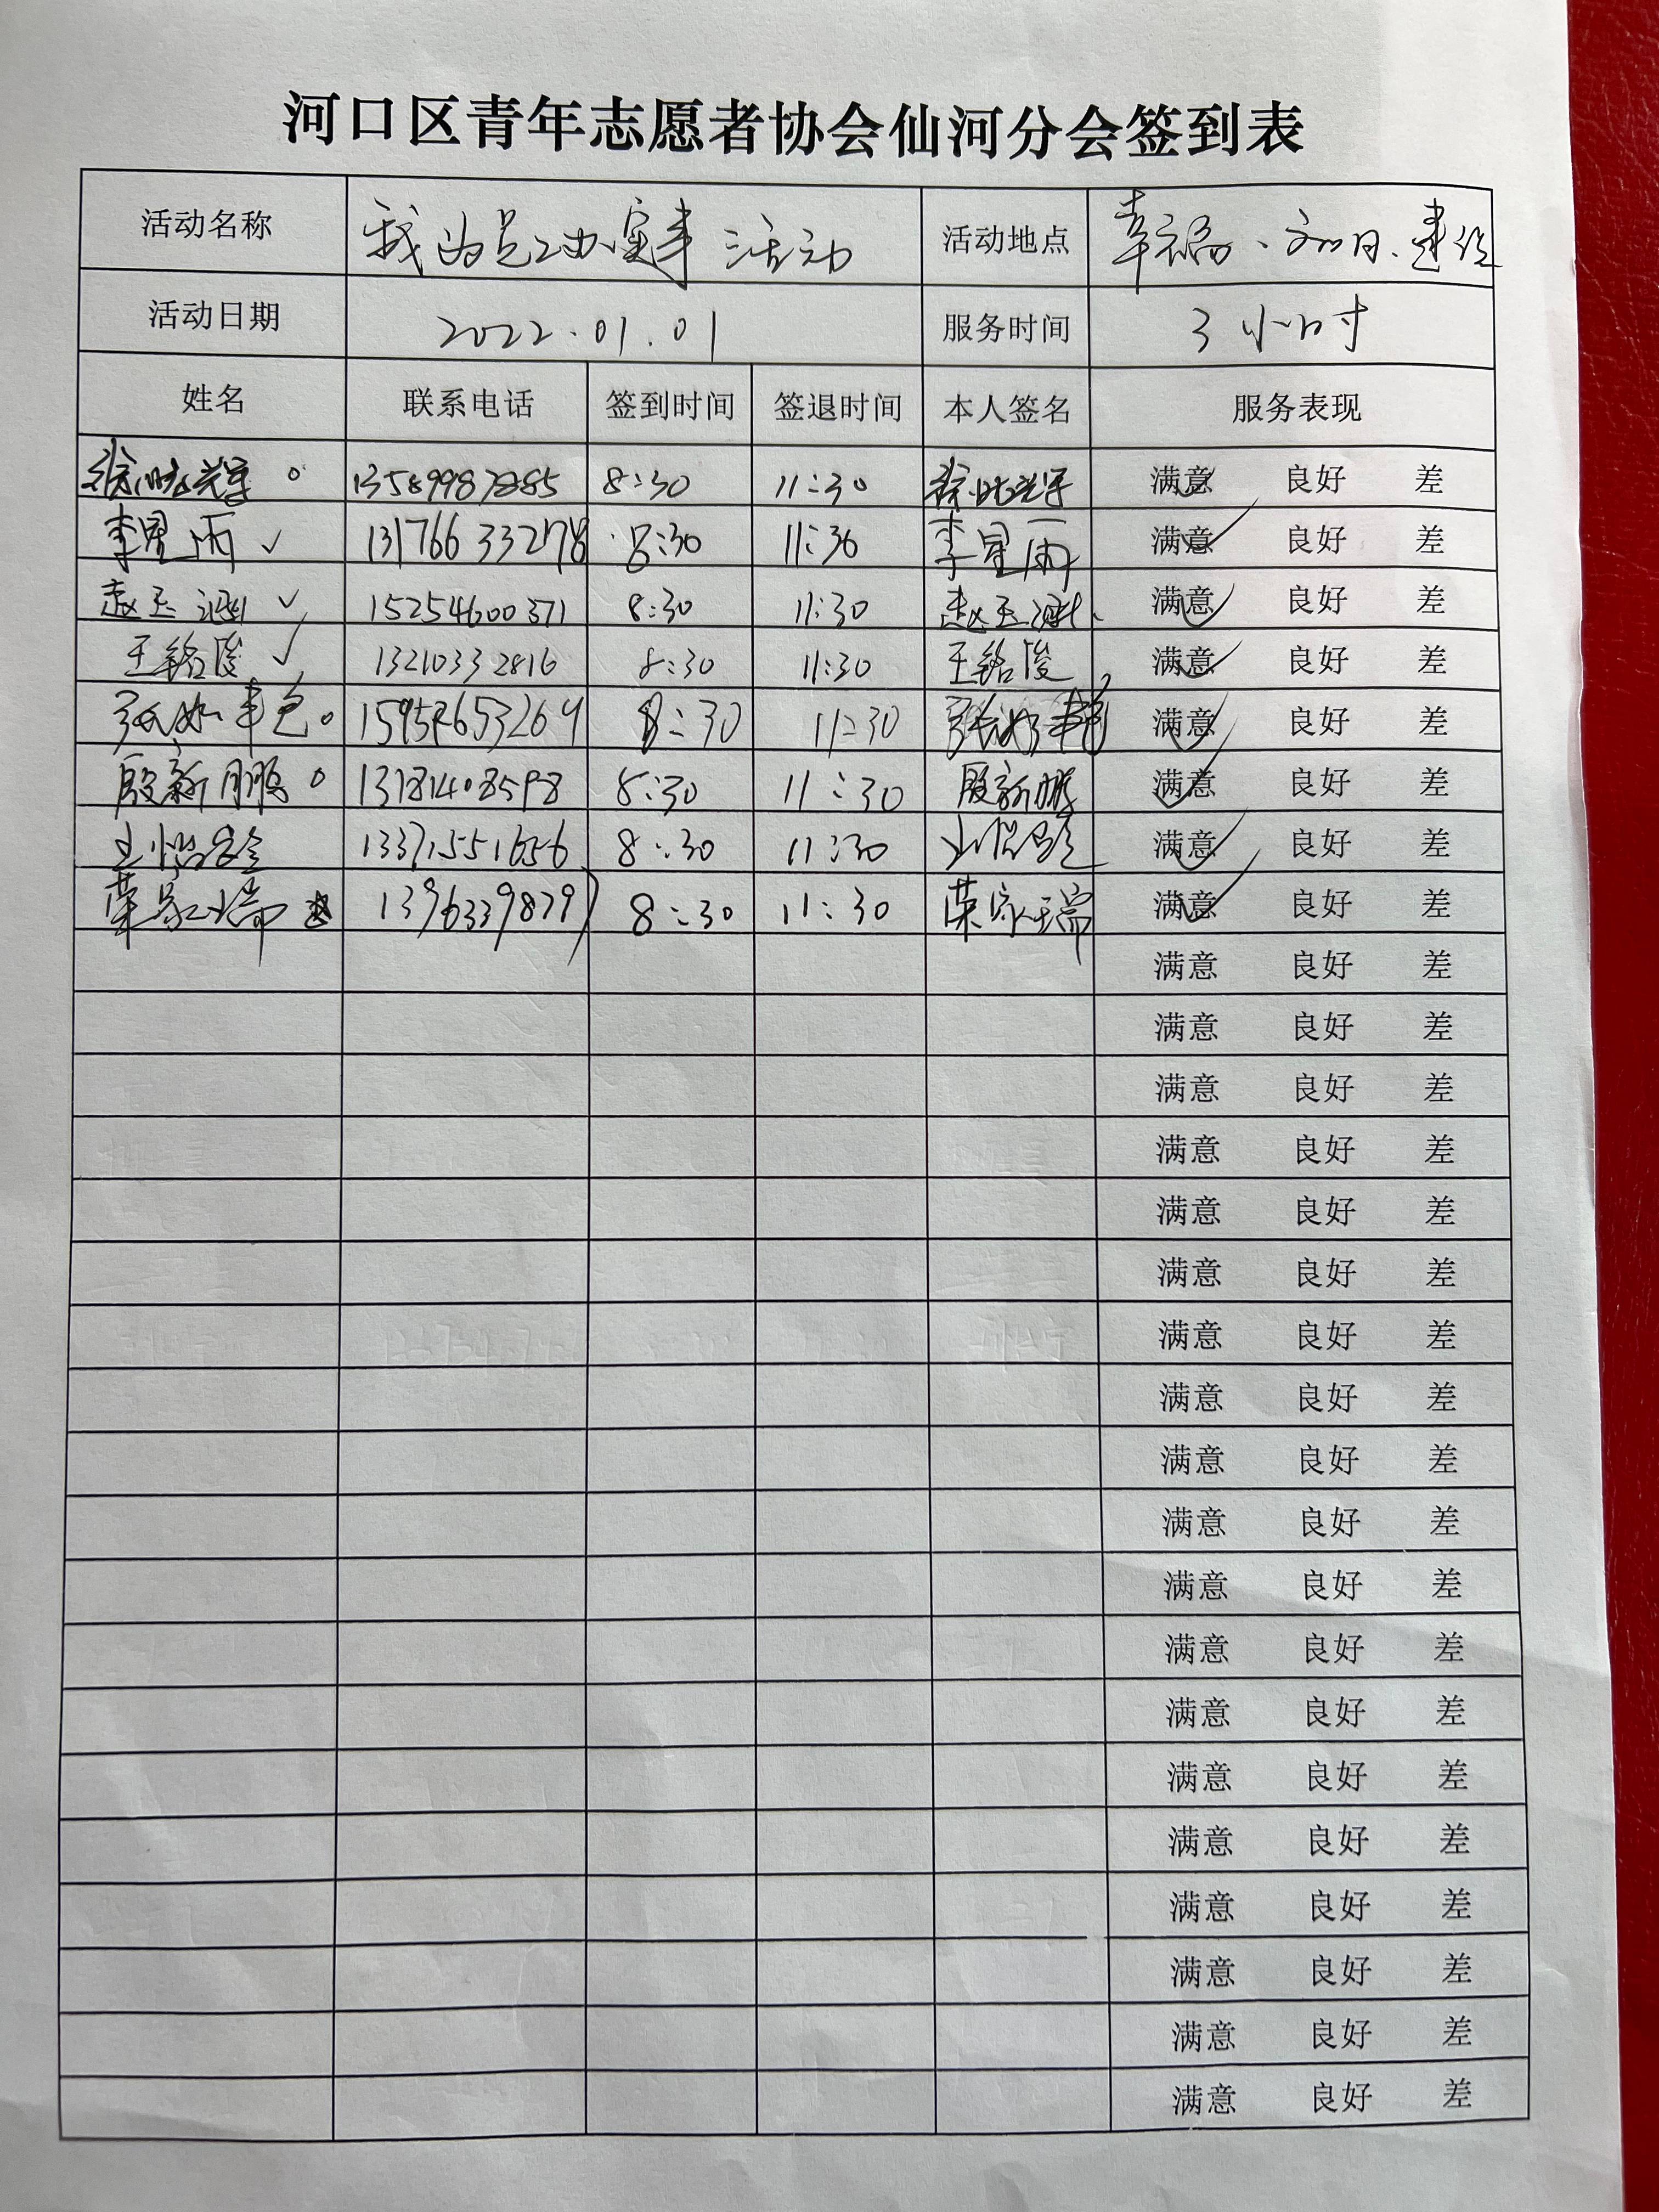 河口区青年志愿者协会仙河分会签到表
活动名称 我为员工办实事 活动 活动地点 幸福、
活动日期 2022.01.01 服务时间 3小时
姓名 联系电话 签到时间 签退时间 本人签名 服务表现
8:30 11:30 满意 良好 差
李星雨 ✓ 13176633278 8:30 11:30 李星雨 满意 良好 差
赵玉 ✓ 15254600371 8:30 11:30 赵玉 满意 良好 差
王铭俊 ✓ 13210332816 8:30 11:30 王铭俊 满意 良好 差
8:30 11:30 满意 良好 差
殷新鹏 13181408598 8:30 11:30 殷新鹏 满意 良好 差
13371551656 8:30 11:30 满意 良好 差
荣家瑞 8:30 11:30 荣家瑞 满意 良好 差
满意 良好 差
满意 良好 差
满意 良好 差
满意 良好 差
满意 良好 差
满意 良好 差
满意 良好 差
满意 良好 差
满意 良好 差
满意 良好 差
满意 良好 差
满意 良好 差
满意 良好 差
满意 良好 差
满意 良好 差
满意 良好 差
满意 良好 差
满意 良好 差
满意 良好 差